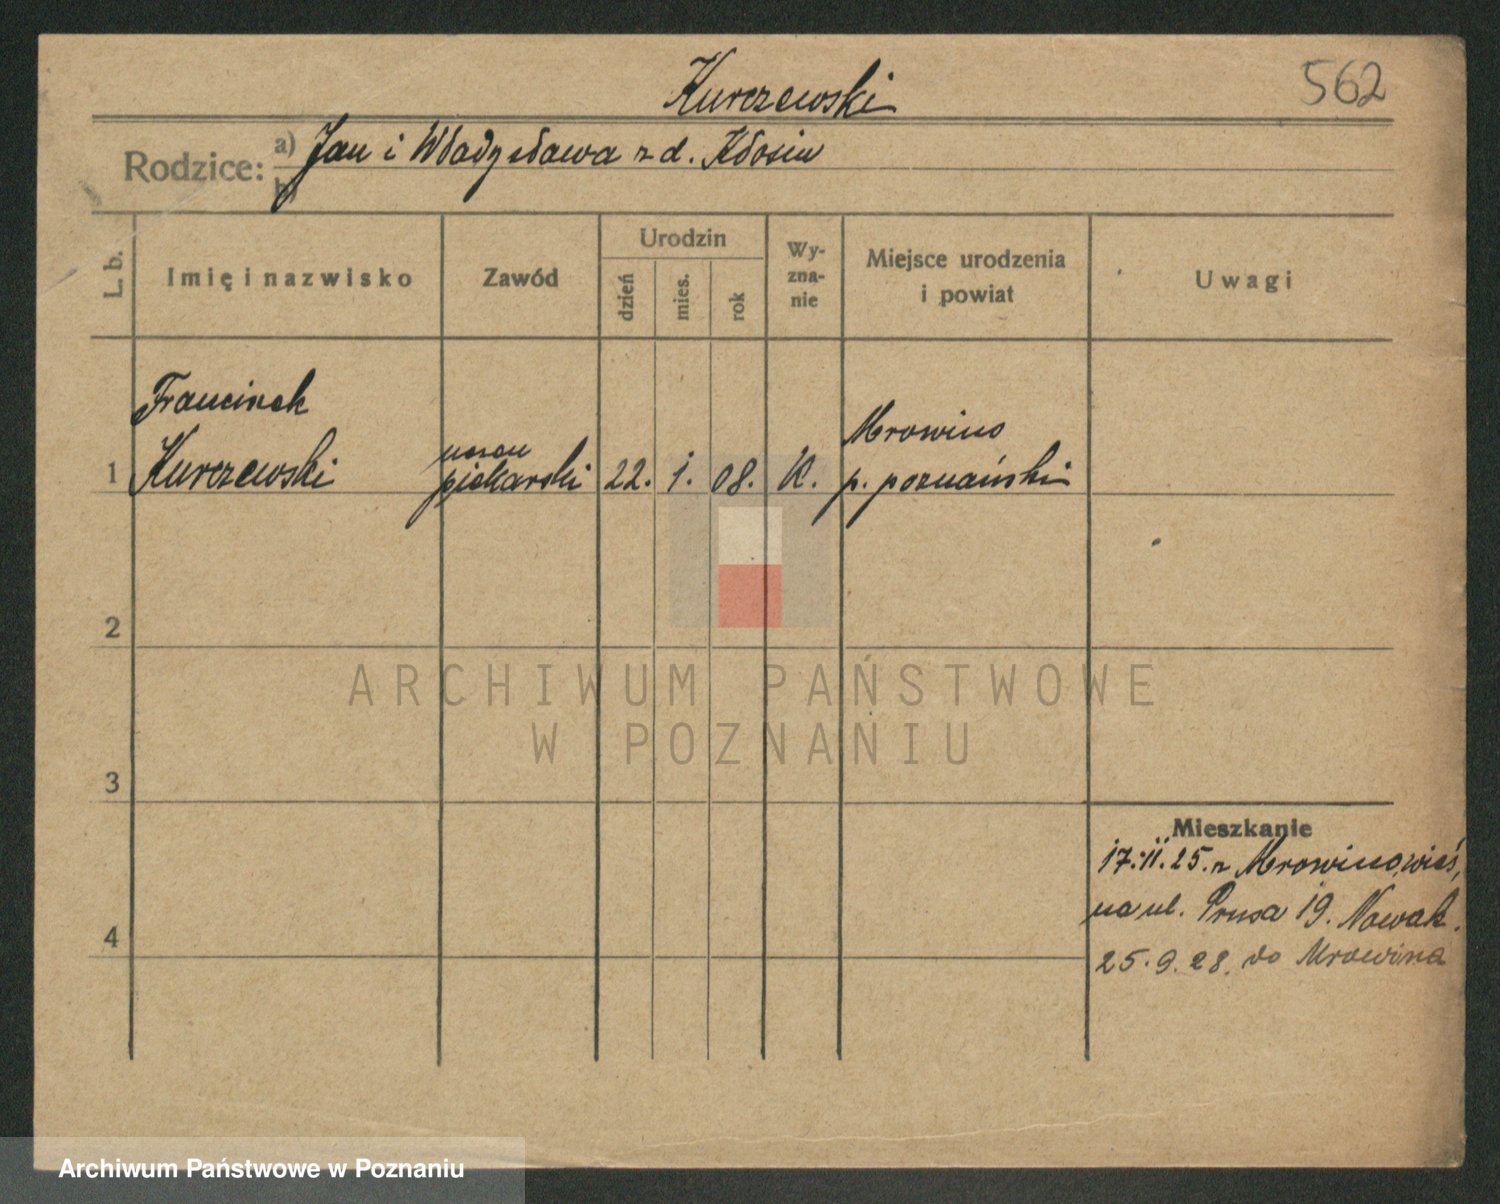 Kurczewski
562
Rodzice: a) Jan i Władysława z d. Kłosin
b)
L. b.
Imię i nazwisko
Zawód
Urodzin
dzień
mies.
rok
Wy-
zna-
nie
Miejsce urodzenia
i powiat
Uwagi
Franciszek
1 Kurczewski
uczeń
piekarski
22. 1. 08. K.
Mrowino
p. poznański
2
3
4
Mieszkanie
17.11.25. z Mrowino, wieś,
na ul. Prusa 19. Nowak.
25.9.28. do Mrowina
ARCHIWUM PAŃSTWOWE
W POZNANIU
Archiwum Państwowe w Poznaniu